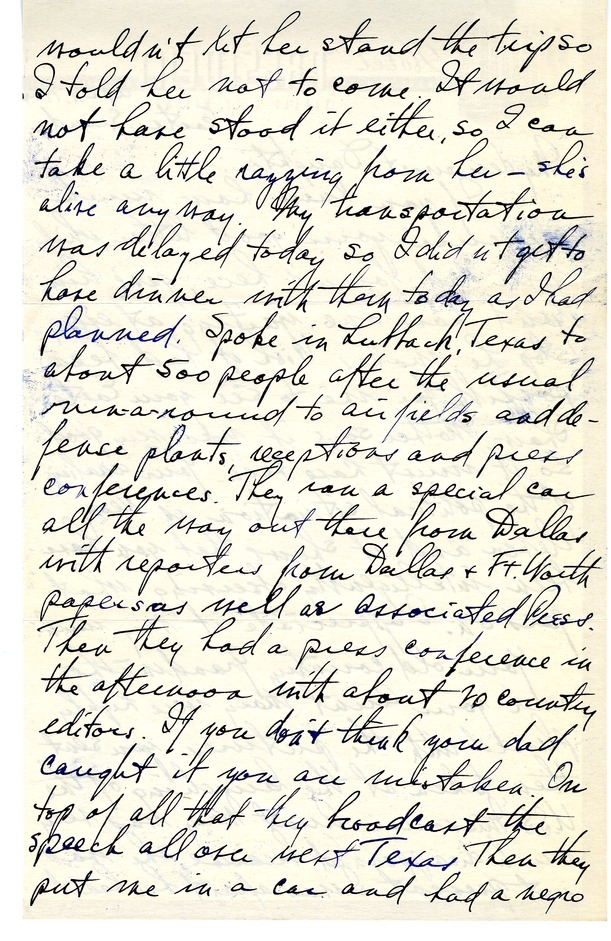 wouldn't let her stand the trip so
I told her not to come. It would
not have stood it either, so I can
take a little razzing from her – she's
alive any way. My transportation
was delayed today so I did n't get to
have dinner with them today as I had
planned. Spoke in Lubback, Texas to
about 500 people after the usual
run-a-round to airfields and de-
fense plants, receptions and press
conferences. They ran a special car
all the way out there from Dallas
with reporters from Dallas + Ft. Worth
papers as well as Associated Press.
Then they had a press conference in
the afternoon with about 20 country
editors. If you don't think your dad
caught it you are mistaken. On
top of all that they broadcast the
speech all over west Texas Then they
put me in a car and had a negro